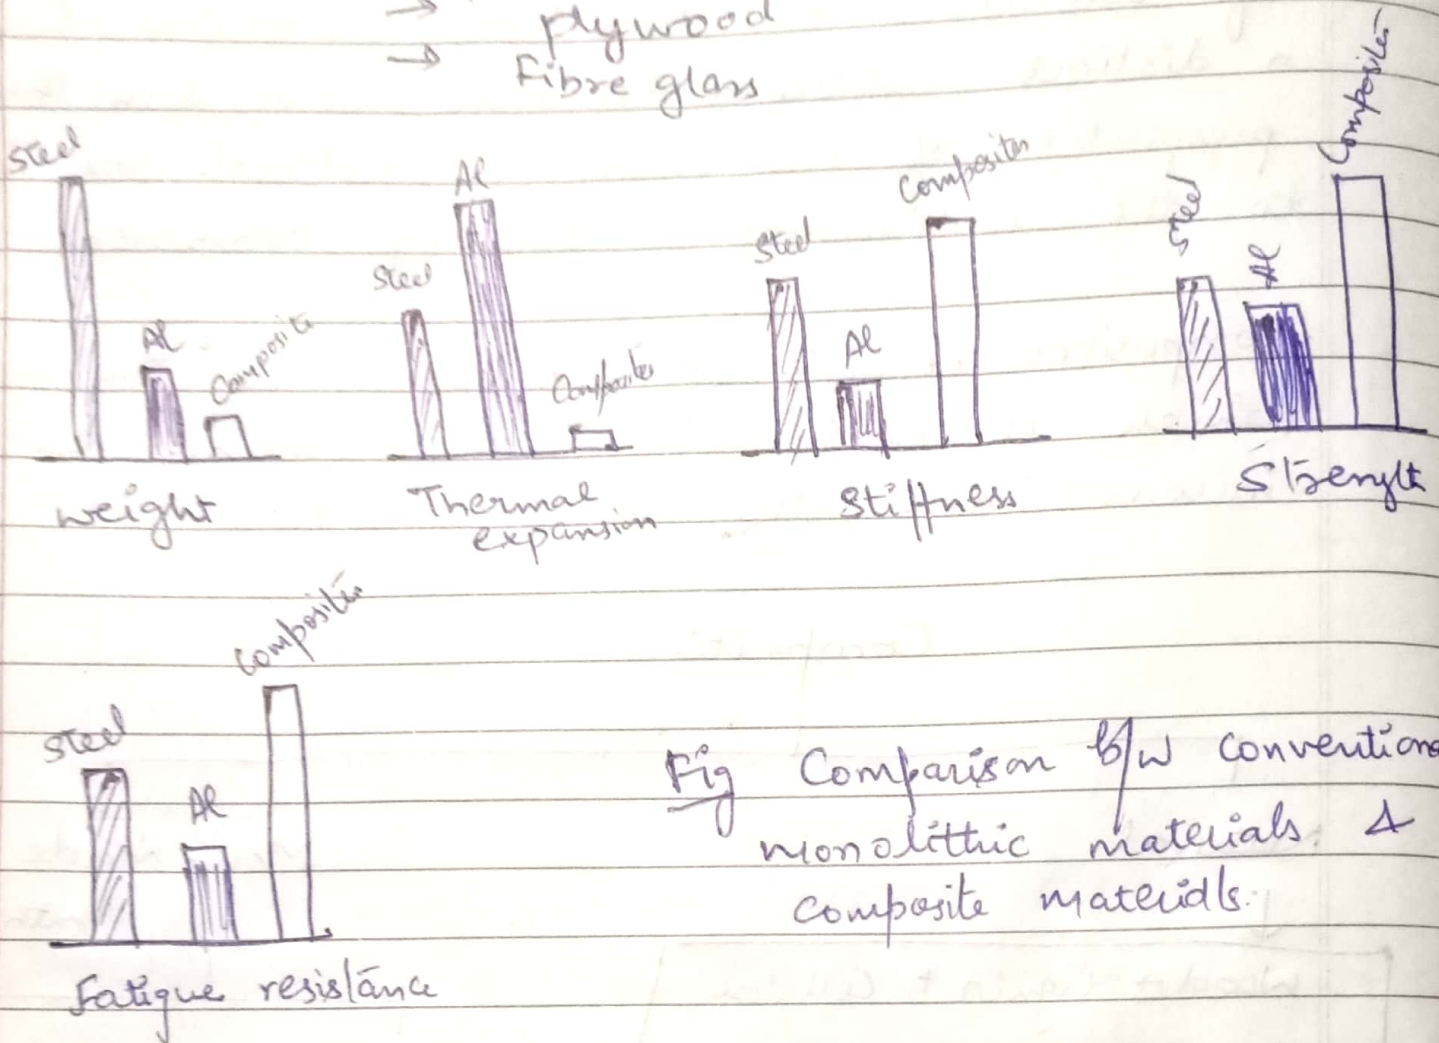 → plywood
→ Fibre glass
Steel
Al
Composite
weight
Steel
Al
Composites
Thermal
expansion
Steel
Al
Composites
Stiffness
Steel
Al
Composites
Strength
Steel
Al
Composites
Fatigue resistance
Fig Comparison b/w conventiona
monolithic materials &
composite materials.